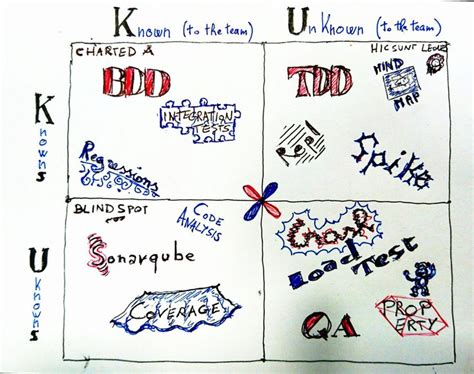 Known (to the team)
UnKnown (to the team)
Knowns
CHARTED
BDD
INTEGRATION
TESTS
Regressions
HIC SUNT LEONES
TDD
MIND
MAP
Repl
Spike
UKnowns
BLIND SPOT
CODE
ANALYSIS
Sonarqube
COVERAGE
Load Test
QA
PROP
ERTY